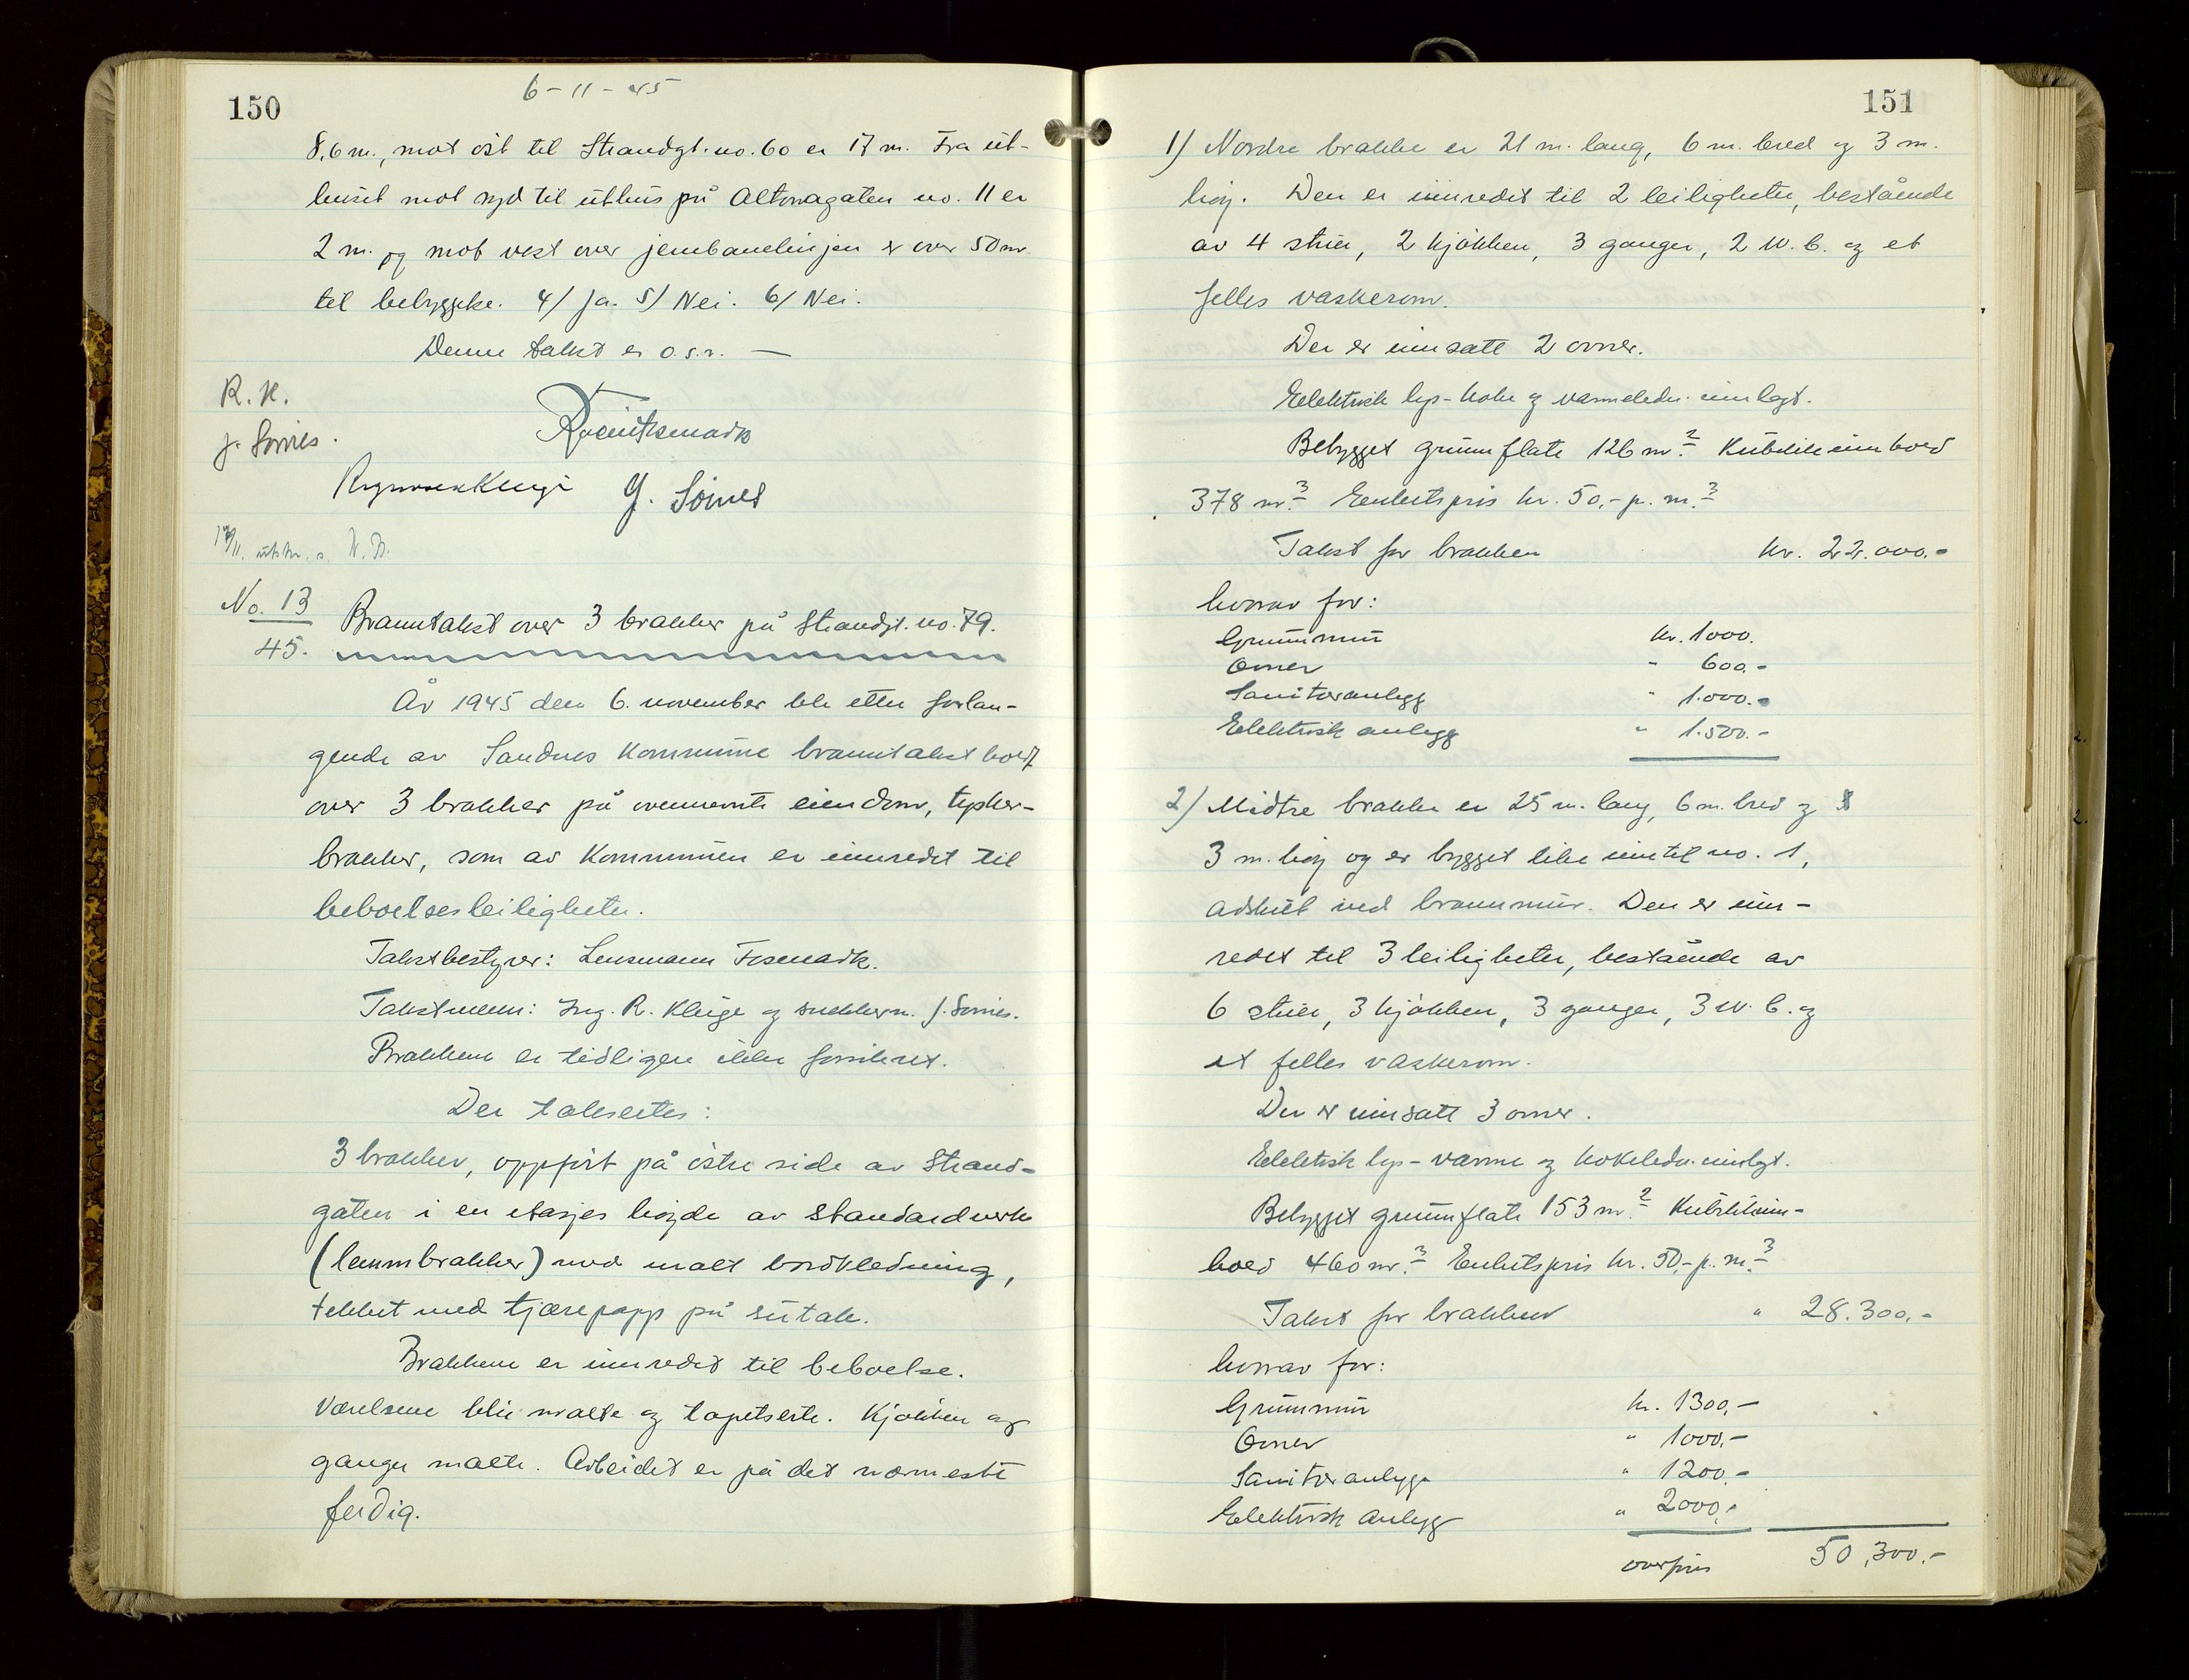 150
6-11-45
8,6 m., mot øst til Strandgt. no. 60 er 17 m. Fra ut-
huset mot syd til uthus på Altonagaten no. 11 er
2 m. og mot vest over jernbanelinjen er over 50 m.
til bebyggelse. 4/ Ja. 5/ Nei. 6/ Nei.
Denne takst er o.s.v. —
R. K.
J. Somes.
G. Somes
utskr. s. N. B.
No. 13
45.
Branntakst over 3 brakker på Strandgt. no. 79.
År 1945 den 6. november ble etter forlan-
gende av Sandnes Kommune branntakst holdt
over 3 brakker på ovennevnte eiendom, tysker-
brakker, som av Kommunen er innredet til
beboelsesleiligheter.
Takstbestyrer: Lensmann Fosmark.
Takstmenn: Ing. R. Kluge og snekkerm. J. Somes.
Brakkene er tidligere ikke forsikret.
Der takseres:
3 brakker, oppført på østre side av Strand-
gaten i en etasjes højde av standardverk
(lemmbrakker) med malt bordkledning,
tekket med tjærepapp på sutak.
Brakkene er innredet til beboelse.
Værelsene blir malte og tapetserte. Kjøkken og
ganger malte. Arbeidet er på det nærmeste
ferdig.
151
1) Nordre brakke er 21 m. lang, 6 m. bred og 3 m.
høy. Den er innredet til 2 leiligheter, bestående
av 4 stuer, 2 kjøkken, 3 ganger, 2 W.C. og et
felles vaskerom.
Der er innsatt 2 ovner.
Elektrisk lys- koke og varmeledn. innlagt.
Bebygget grunnflate 126 m². Kubikkinnhold
378 m³. Enhetspris kr. 50,- p. m³
Takst for brakken kr. 22.000.-
hvorav for:
Grunnmur kr. 1000.
Ovner " 600.-
Sanitæranlegg " 1.000.-
Elektrisk anlegg " 1.500.-
2) Midtre brakke er 25 m. lang, 6 m. bred og
3 m. høy og er bygget like inntil no. 1,
adskilt ved brannmur. Den er inn-
redet til 3 leiligheter, bestående av
6 stuer, 3 kjøkken, 3 ganger, 3 W.C. og
et felles vaskerom.
Der er innsatt 3 ovner.
Elektrisk lys- varme og kokeledn. innlagt.
Bebygget grunnflate 153 m². Kubikkinn-
hold 460 m³. Enhetspris kr. 50,- p. m³
Takst for brakken " 28.300,-
hvorav for:
Grunnmur kr. 1300,-
Ovner " 1000,-
Sanitæranlegg " 1200.-
Elektrisk anlegg " 2000,-
overføres 50,300.-